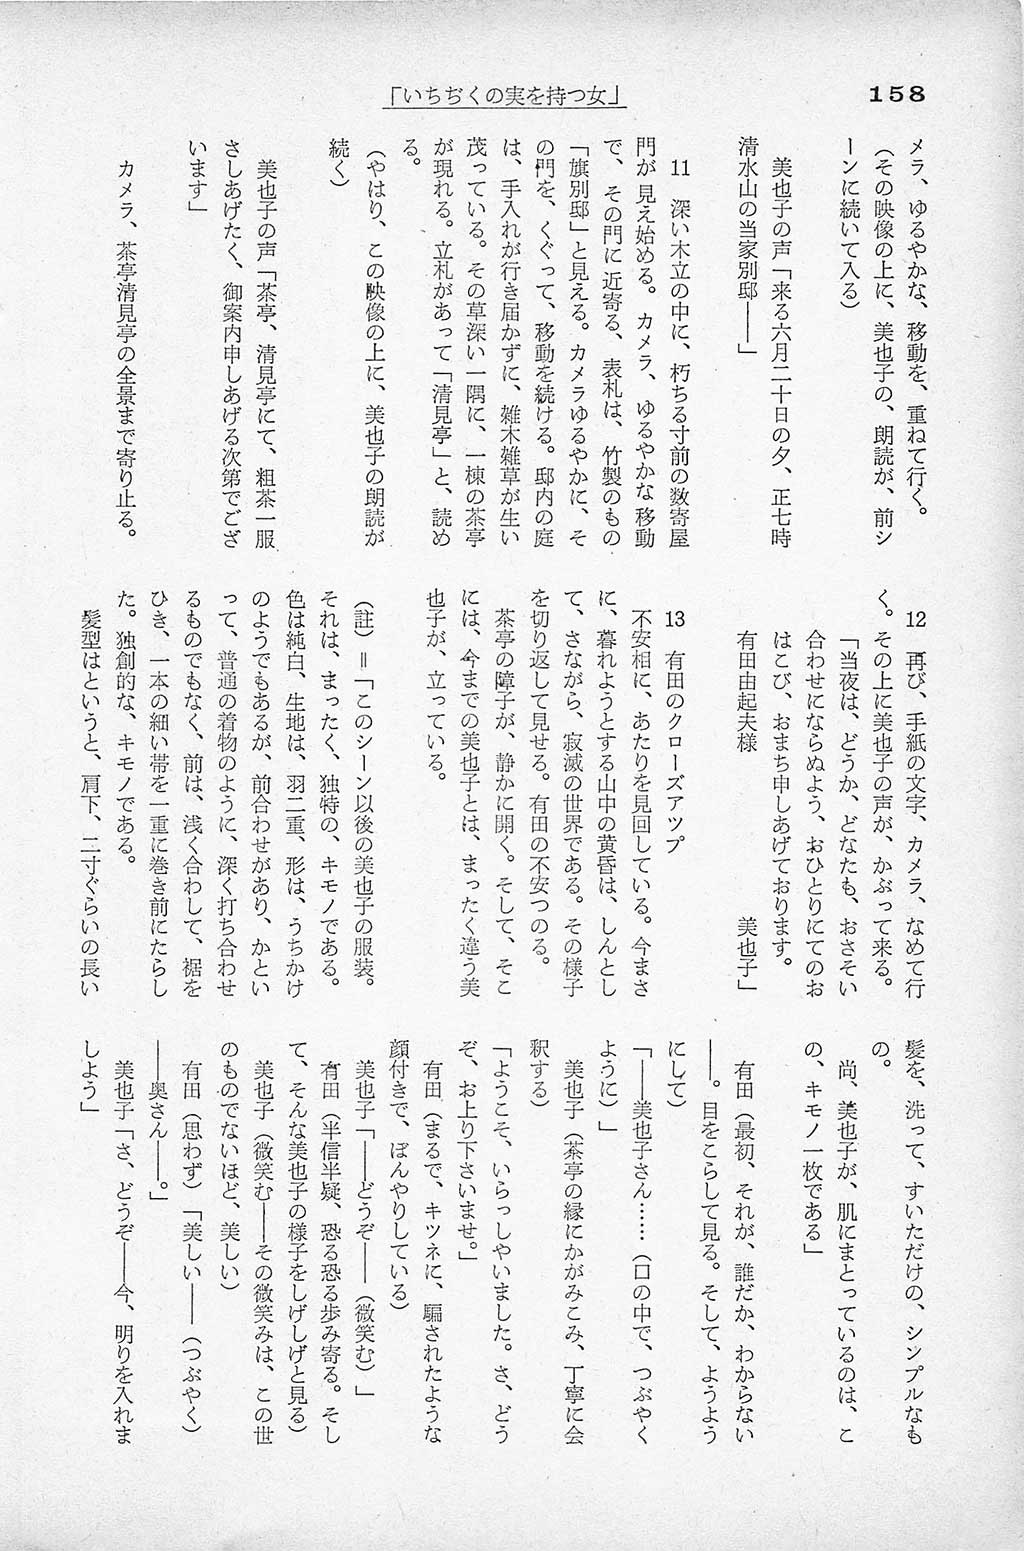 158
「いちぢくの実を持つ女」
メラ、ゆるやかな、移動を、重ねて行く。
(その映像の上に、美也子の、朗読が、前シ
ーンに続いて入る)
美也子の声「来る六月二十日の夕、正七時
清水山の当家別邸――」
11　深い木立の中に、朽ちる寸前の数寄屋
門が見え始める。カメラ、ゆるやかな移動
で、その門に近寄る、表札は、竹製のもの
「旗別邸」と見える。カメラゆるやかに、そ
の門を、くぐって、移動を続ける。邸内の庭
は、手入れが行き届かずに、雑木雑草が生い
茂っている。その草深い一隅に、一棟の茶亭
が現れる。立札があって「清見亭」と、読め
る。
(やはり、この映像の上に、美也子の朗読が
続く)
美也子の声「茶亭、清見亭にて、粗茶一服
さしあげたく、御案内申しあげる次第でござ
います」
カメラ、茶亭清見亭の全景まで寄り止る。
12　再び、手紙の文字、カメラ、なめて行
く。その上に美也子の声が、かぶって来る。
「当夜は、どうか、どなたも、おさそい
合わせにならぬよう、おひとりにてのお
はこび、おまち申しあげております。
有田由起夫様　　　　美也子」
13　有田のクローズアツプ
不安相に、あたりを見回している。今まさ
に、暮れようとする山中の黄昏は、しんとし
て、さながら、寂滅の世界である。その様子
を切り返して見せる。有田の不安つのる。
茶亭の障子が、静かに開く。そして、そこ
には、今までの美也子とは、まったく違う美
也子が、立っている。
(註)＝「このシーン以後の美也子の服装。
それは、まったく、独特の、キモノである。
色は純白、生地は、羽二重、形は、うちかけ
のようでもあるが、前合わせがあり、かとい
って、普通の着物のように、深く打ち合わせ
るものでもなく、前は、浅く合わして、裾を
ひき、一本の細い帯を一重に巻き前にたらし
た。独創的な、キモノである。
髪型はというと、肩下、二寸ぐらいの長い
髪を、洗って、すいただけの、シンプルなも
の。
尚、美也子が、肌にまとっているのは、こ
の、キモノ一枚である」
有田(最初、それが、誰だか、わからない
――。目をこらして見る。そして、ようよう
にして)
「――美也子さん……(口の中で、つぶやく
ように)」
美也子(茶亭の縁にかがみこみ、丁寧に会
釈する)
「ようこそ、いらっしやいました。さ、どう
ぞ、お上り下さいませ。」
有田(まるで、キツネに、騙されたような
顔付きで、ぼんやりしている)
美也子「――どうぞ――(微笑む)」
有田(半信半疑、恐る恐る歩み寄る。そし
て、そんな美也子の様子をしげしげと見る)
美也子(微笑む――その微笑みは、この世
のものでないほど、美しい)
有田(思わず)「美しい――(つぶやく)
――奥さん――。」
美也子「さ、どうぞ――今、明りを入れま
しよう」